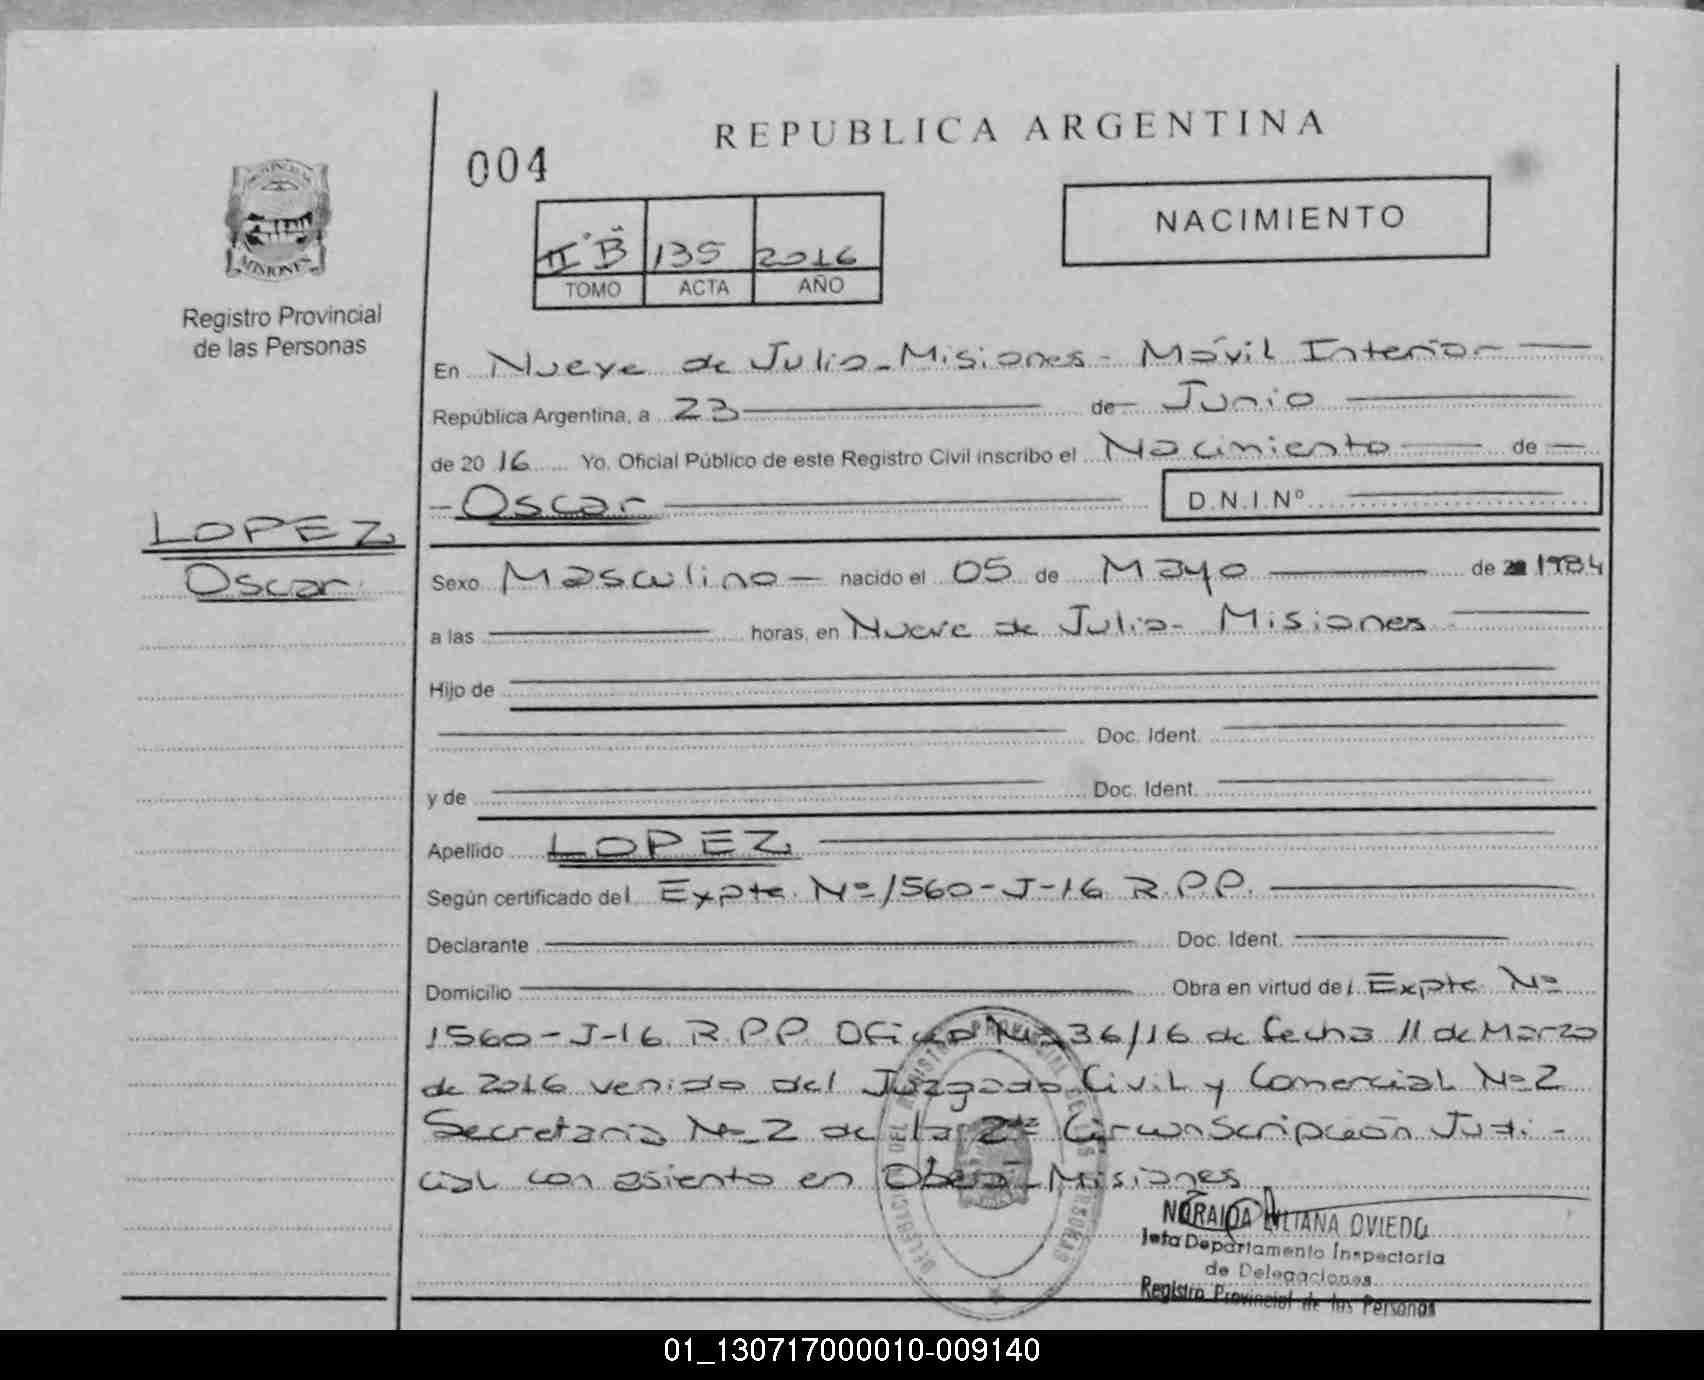 REPUBLICA ARGENTINA
004
NACIMIENTO
II° "B" 135 2016
TOMO ACTA AÑO
MISIONES
Registro Provincial
de las Personas
En Nueve de Julio - Misiones - Móvil Interior
República Argentina, a 23 de Junio
de 20 16 Yo, Oficial Público de este Registro Civil inscribo el Nacimiento de
Oscar D.N.I.Nº
LOPEZ
Oscar
Sexo Masculino nacido el 05 de Mayo de 1984
a las horas, en Nueve de Julio - Misiones
Hijo de
Doc. Ident.
y de Doc. Ident.
Apellido LOPEZ
Según certificado del Expte. Nº 1560-J-16 R.P.P.
Declarante Doc. Ident.
Domicilio Obra en virtud del Expte Nº
1560-J-16 R.P.P. Oficio Nº 36/16 de fecha 11 de Marzo
de 2016 venido del Juzgado Civil y Comercial Nº 2
Secretaria Nº 2 de la 2da Circunscripción Judi-
cial con asiento en Oberá - Misiones
NORAIDA LILIANA OVIEDO
Jefa Departamento Inspectoria
de Delegaciones
Registro Provincial de las Personas
01_130717000010-009140